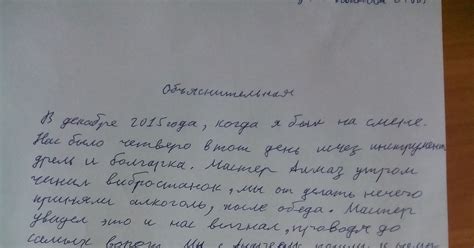 Объяснительная
В декабре 2015 года, когда я был на смене.
Нас было четверо в тот день исчез инструмент
дрель и болгарка. Мастер Алмаз утром
чинил вибростанок, мы от делать нечего
приняли алкоголь, после обеда. Мастер
увидел это и нас выгнал, проводя до
самых ворот. Мы с